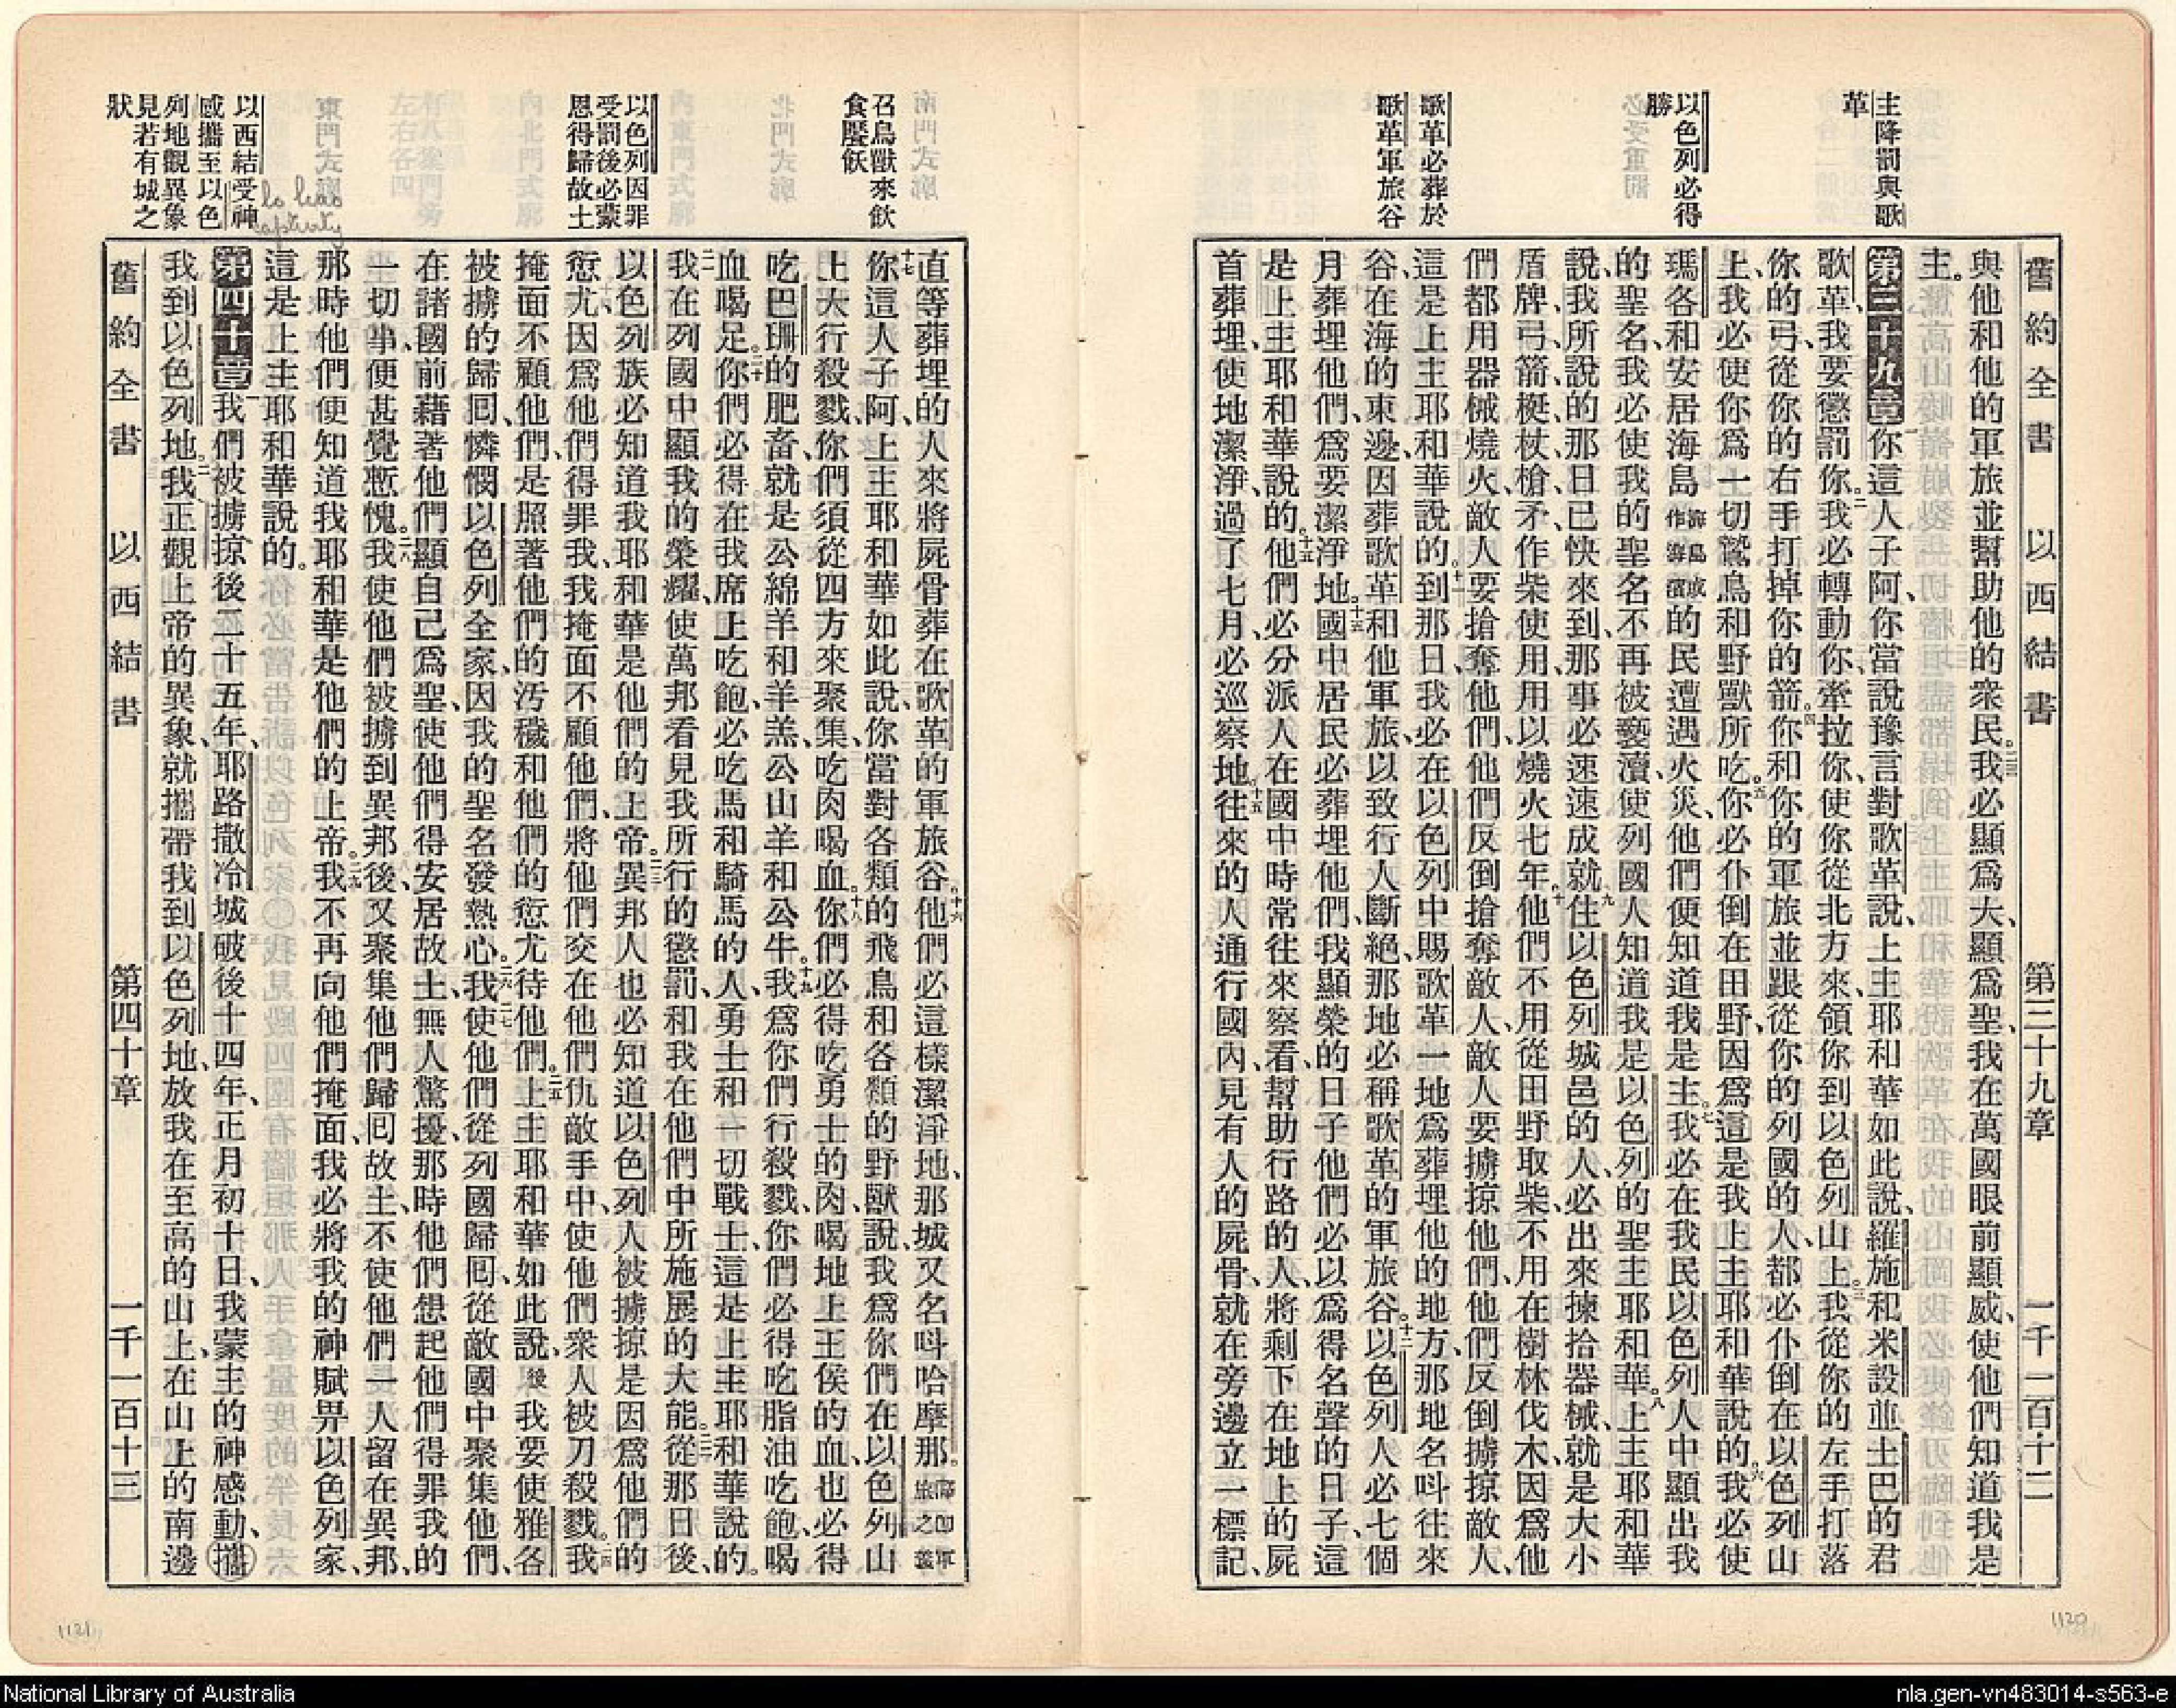 舊約全書 以西結書 第三十九章 一千一百十二
主降罰與歌
革
以色列必得
勝
歌革必葬於
歌革軍旅谷
與他和他的軍旅並幫助他的衆民。二三我必顯爲大、顯爲聖、我在萬國眼前顯威、使他們知道我是
主。
第三十九章一你這人子阿、你當說豫言對歌革說、上主耶和華如此說、羅施和米設並土巴的君
歌革、我要懲罰你。二我必轉動你、牽拉你、使你從北方來、領你到以色列山上。三我從你的左手打落
你的弓、從你的右手打掉你的箭。四你和你的軍旅並跟從你的列國的人、都必仆倒在以色列山
上、我必使你爲一切鷙鳥和野獸所吃。五你必仆倒在田野、因爲這是我上主耶和華說的。六我必使
瑪各和安居海島海島或作海濱的民遭遇火災、他們便知道我是主。七我必在我民以色列人中顯出我
的聖名、我必使我的聖名不再被褻瀆、使列國人知道我是以色列的聖主耶和華。八上主耶和華
說、我所說的那日已快來到、那事必速速成就九住以色列城邑的人、必出來揀拾器械、就是大小
盾牌、弓箭、梃杖、槍矛、作柴使用、用以燒火七年。十他們不用從田野取柴、不用在樹林伐木、因爲他
們都用器械燒火、敵人要搶奪他們、他們反倒搶奪敵人、敵人要擄掠他們、他們反倒擄掠敵人、
這是上主耶和華說的。十一到那日、我必在以色列中賜歌革一地爲葬埋他的地方、那地名呌往來
谷、在海的東邊、因葬歌革和他軍旅、以致行人斷絕、那地必稱歌革的軍旅谷。十二以色列人必七個
月葬埋他們、爲要潔淨地。十三國中居民必葬埋他們、我顯榮的日子他們必以爲得名聲的日子、這
是上主耶和華說的。十四他們必分派人在國中時常往來察看、幫助行路的人、將剩下在地上的屍
首葬埋、使地潔淨、過了七月、必巡察地十五往來的人通行國內、見有人的屍骨、就在旁邊立一標記、
1120
召鳥獸來飲
食饜飫
以色列因罪
受罰後必蒙
恩得歸故土
以西結受神
感攜至以色
列地觀異象
見若有城之
狀
直等葬埋的人來將屍骨葬在歌革的軍旅谷。十六他們必這樣潔淨地、那城又名呌哈摩那。
十七你這人子阿、上主耶和華如此說、你當對各類的飛鳥和各類的野獸說、我爲你們在以色列山
上大行殺戮、你們須從四方來聚集、吃肉喝血。十八你們必得吃勇士的肉、喝地上王侯的血、也必得
吃巴珊的肥畜、就是公綿羊和羊羔、公山羊和公牛。十九我爲你們行殺戮、你們必得吃脂油吃飽、喝
血喝足。二十你們必得在我席上吃飽、必吃馬和騎馬的人、勇士和一切戰士、這是上主耶和華說的。
二一我在列國中顯我的榮耀、使萬邦看見我所行的懲罰、和我在他們中所施展的大能。二二從那日後、
以色列族必知道我耶和華是他們的上帝。二三異邦人也必知道以色列人被擄掠是因爲他們的
愆尤、因爲他們得罪我、我掩面不顧他們、將他們交在他們仇敵手中、使他們衆人被刀殺戮。二四我
掩面不顧他們、是照著他們的汚穢和他們的愆尤待他們。二五上主耶和華如此說、後我要使雅各
被擄的歸囘、憐憫以色列全家、因我的聖名發熱心。二六我使二七他們從列國歸囘、從敵國中聚集他們、
在諸國前藉著他們顯自己爲聖、使他們得安居故土、無人驚擾、那時他們想起他們得罪我的
一切事、便甚覺慙愧。二八我使他們被擄到異邦後、又聚集他們歸囘故土、不使他們一人留在異邦、
那時他們便知道我耶和華是他們的上帝。二九我不再向他們掩面、我必將我的神賦畀以色列家、
這是上主耶和華說的。
第四十章一我們被擄掠後二十五年、耶路撒冷城破後十四年、正月初十日、我蒙主的神感動、攜
我到以色列地。二我正觀上帝的異象、就攜帶我到以色列地、放我在至高的山上、在山上的南邊
舊約全書 以西結書 第四十章 一千一百十三
captivity
1121
National Library of Australia
nla.gen-vn483014-s563-e